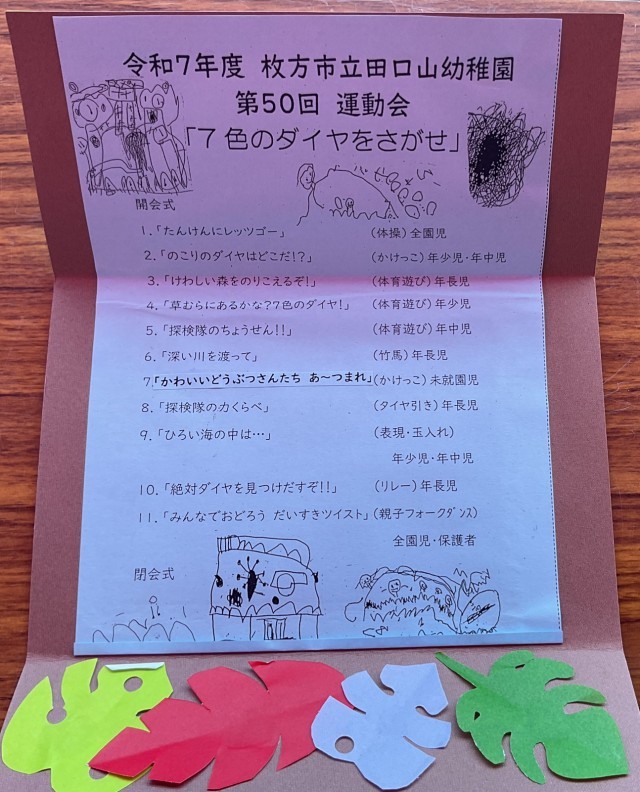 令和7年度 枚方市立田口山幼稚園
第50回 運動会
「7色のダイヤをさがせ」
開会式
1.「たんけんにレッツゴー」 (体操)全園児
2.「のこりのダイヤはどこだ!?」 (かけっこ)年少児・年中児
3.「けわしい森をのりこえるぞ!」 (体育遊び)年長児
4.「草むらにあるかな?7色のダイヤ!」 (体育遊び)年少児
5.「探検隊のちょうせん!!」 (体育遊び)年中児
6.「深い川を渡って」 (竹馬)年長児
7.「かわいいどうぶつさんたち あ〜つまれ」(かけっこ)未就園児
8.「探検隊の力くらべ」 (タイヤ引き)年長児
9.「ひろい海の中は…」 (表現・玉入れ)
年少児・年中児
10.「絶対ダイヤを見つけだすぞ!!」 (リレー)年長児
11.「みんなでおどろう だいすきツイスト」(親子フォークダンス)
全園児・保護者
閉会式